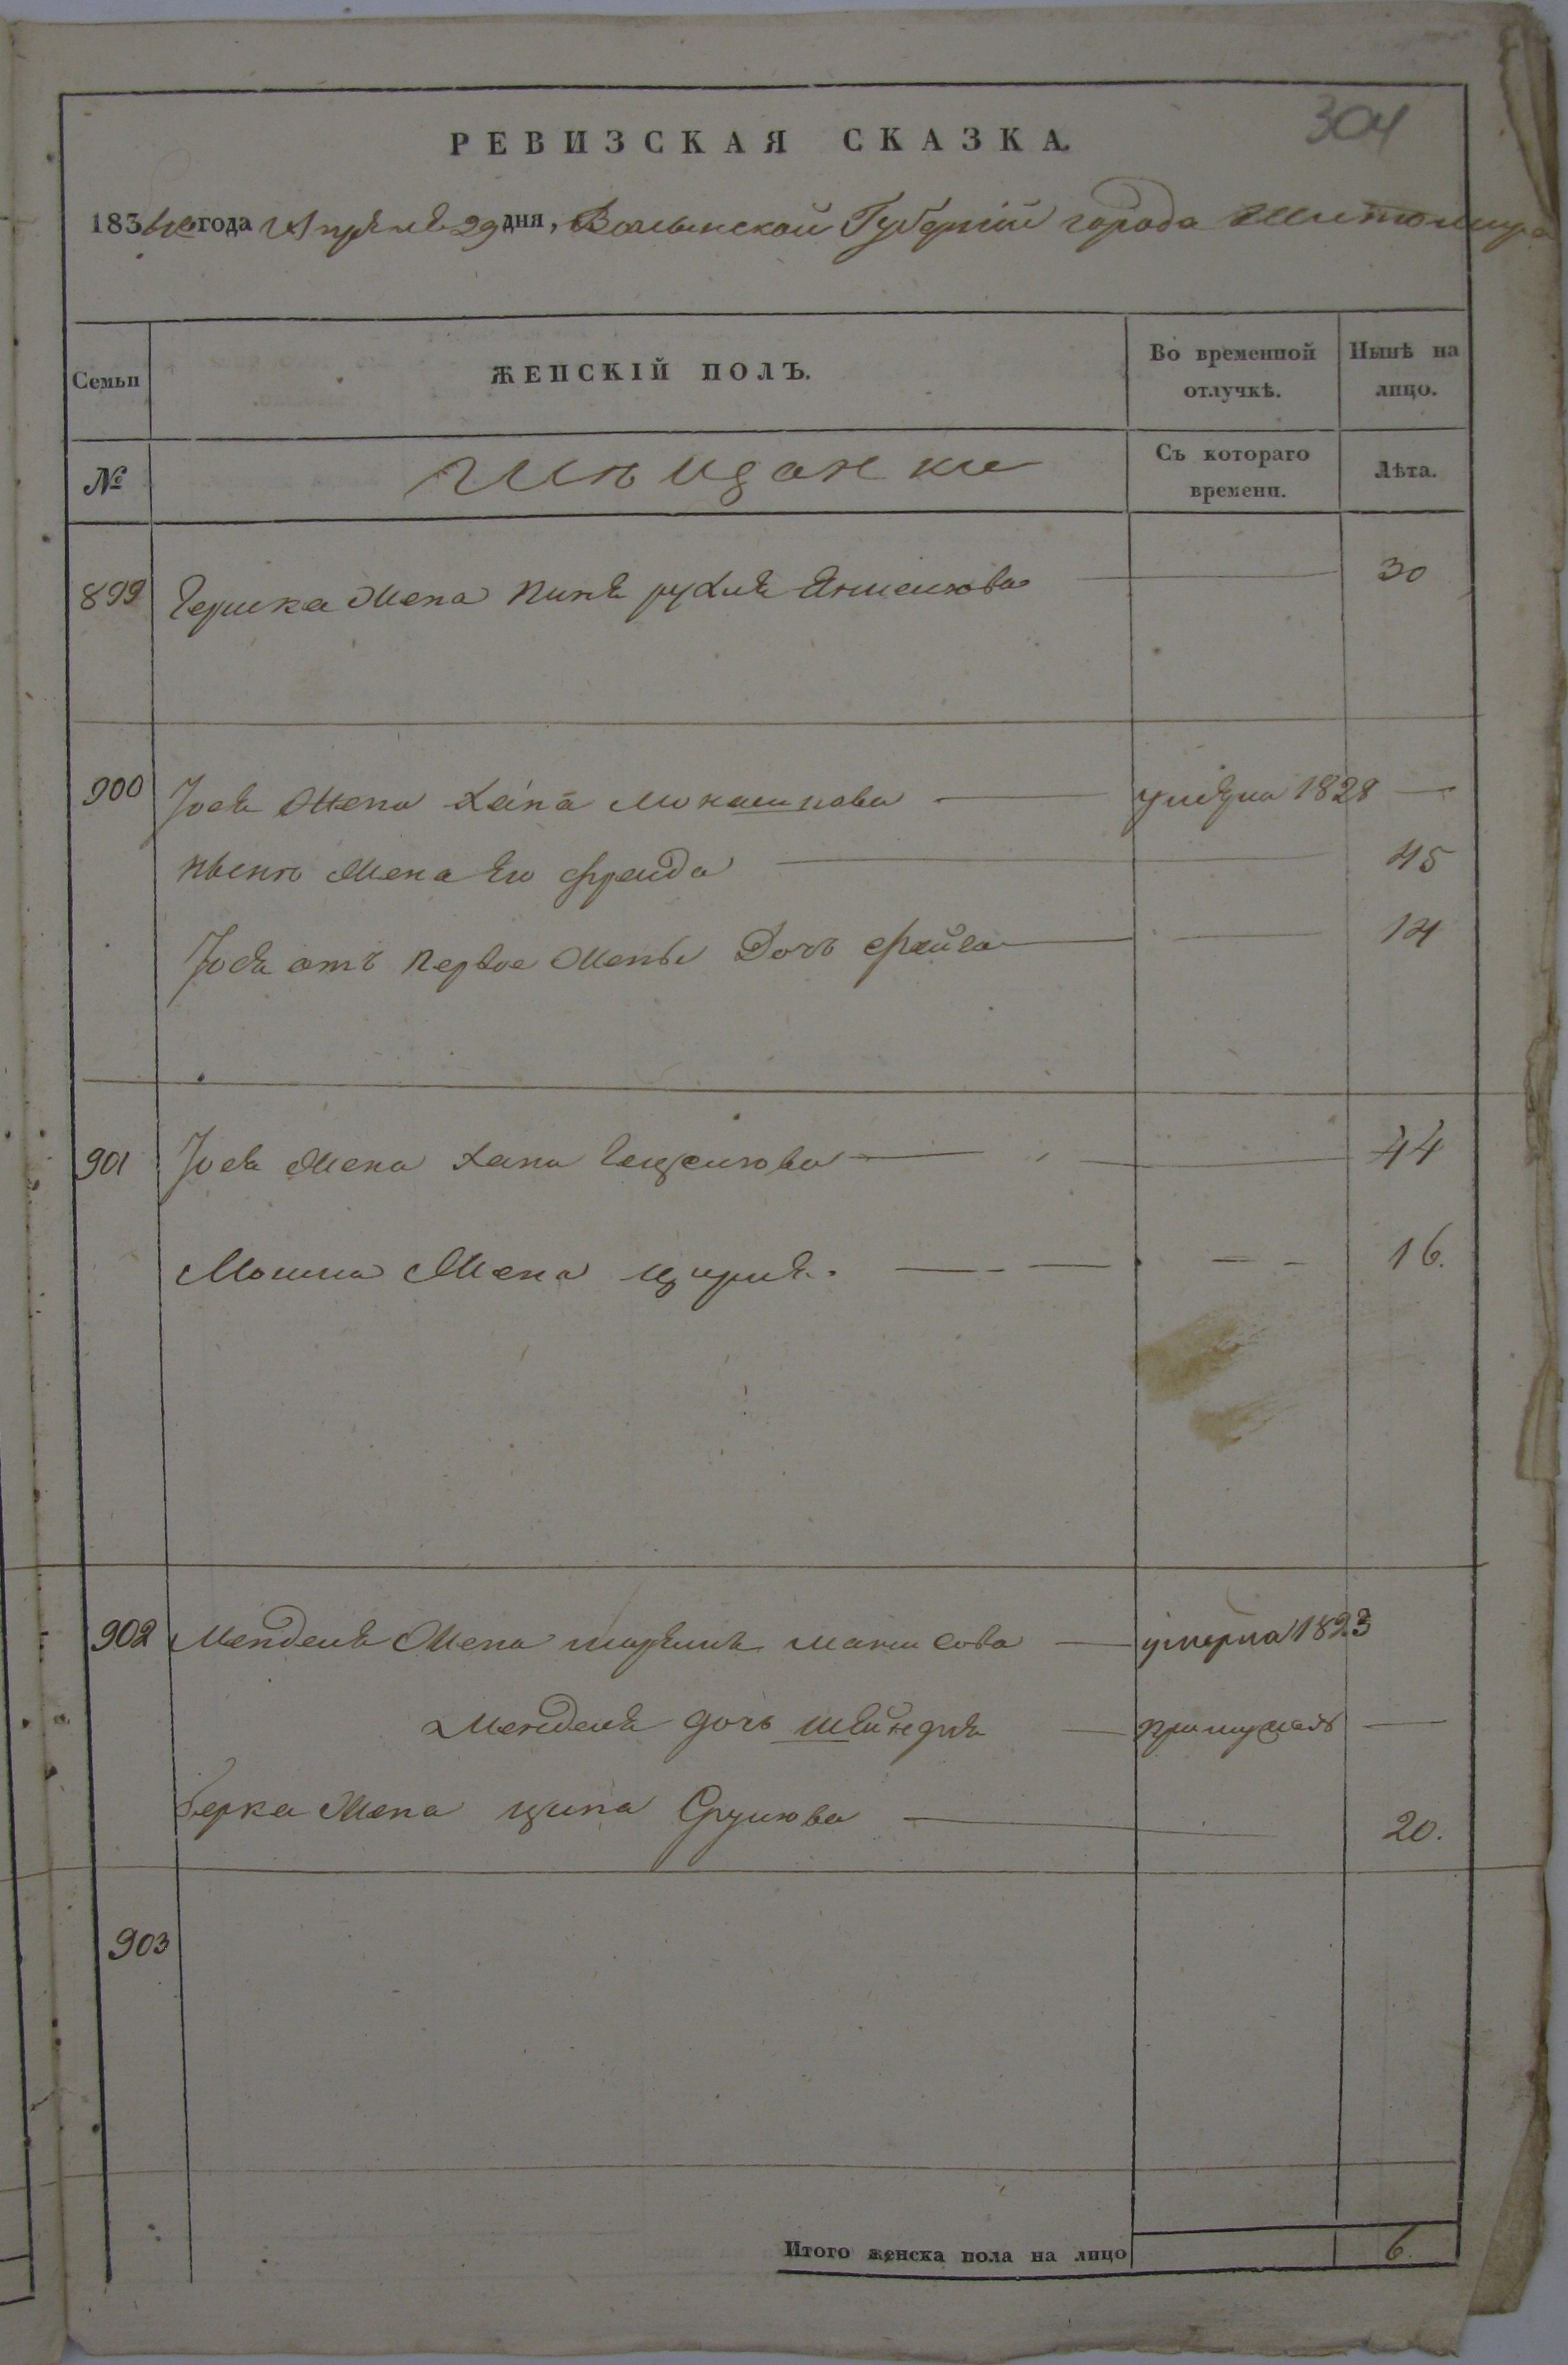 304
РЕВИЗСКАЯ СКАЗКА.
1834го года Апреля 29 дня, Волынской Губернии города Житомира
Семьи
ЖЕНСКІЙ ПОЛЪ.
Во временной отлучкѣ.
Нынѣ на лицо.
№
Мѣщанки
Съ котораго времени.
Лѣта.
899 Гершка жена Пиня рухля Аншелиова 30
900 Иося жена Хана умерла 1828 —
ныне жена его фрейда 45
Иося отъ первое жены дочь файга 14
901 Иося жена Хана 44
Мошка жена цирля. 16.
902 Менделя жена умерла 1823
Менделя дочь шейндля —
Берка жена ципа Срулиова 20.
903
Итого женска пола на лицо 6